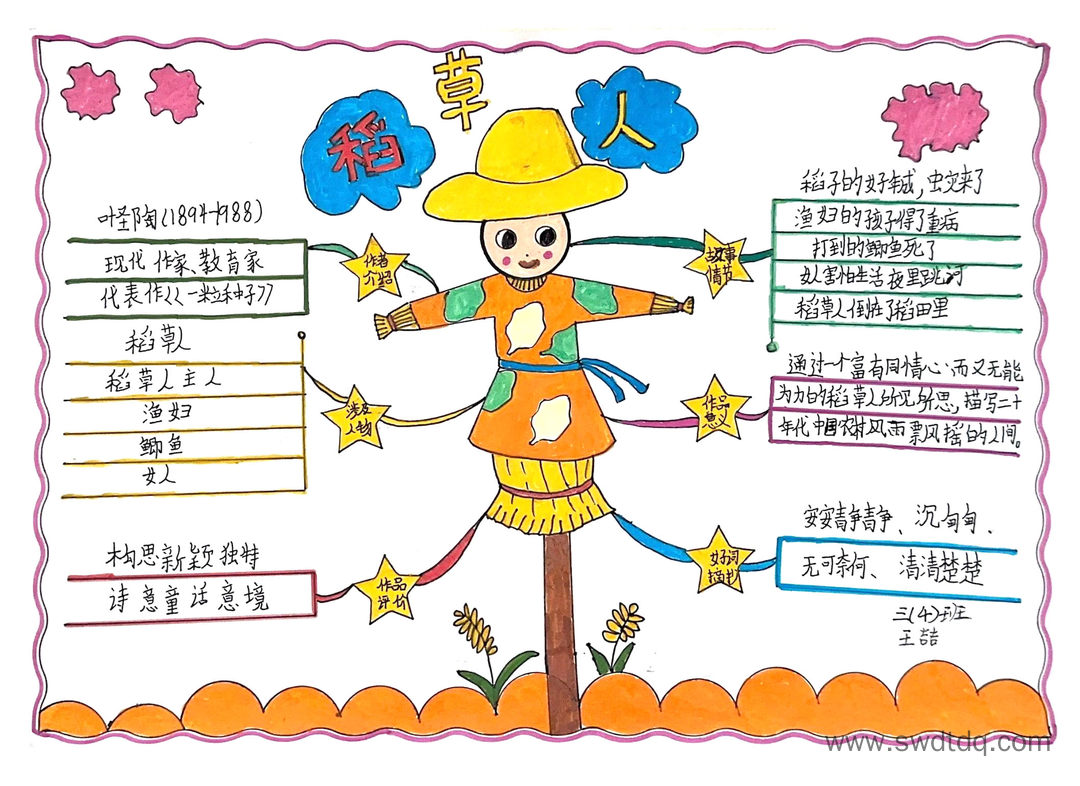 稻草人
作者
介绍
叶圣陶(1894-1988)
现代 作家、教育家
代表作《《一粒种子》》
涉及
人物
稻草人
稻草人主人
渔妇
鲫鱼
女人
作品
评价
构思新颖独特
诗意童话意境
故事
情节
稻子的好收成,虫灾来了
渔妇的孩子得了重病
打到的鲫鱼死了
女人害怕生活夜里跳河
稻草人倒在了稻田里
作品
意义
通过一个富有同情心而又无能
为力的稻草人所见所思,描写二十
年代中国农村风雨飘摇的人间。
好词
摘抄
安安静静、沉甸甸、
无可奈何、清清楚楚
三(4)班
王喆
www.swdtdq.com